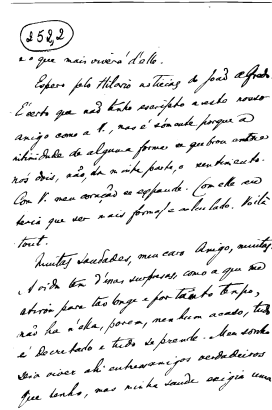 252,2
e o que mais viverá d'elle.
Espero pelo Hilario noticias do João Alfredo
É certo que não tenho escripto a este nosso
amigo como a V., mas é sómente porque a
intimidade de alguma forma se quebrou entre
nós dois, não, da minha parte, o sentimento.
Com V. meu coração se expande. Com elle eu
teria que ser mais formal e calculado. Voilà
tout.
Muitas saudades, meu caro Amigo, muitas.
A vida tem d'essas surpresas, como a que me
atirou para tão longe e por tanto tempo,
não ha n'ella, porem, nenhum acaso, tudo
é decretado e tudo se prende. Meu sonho
seria viver ahi entre os amigos verdadeiros
que tenho, mas minha saude exigia uma